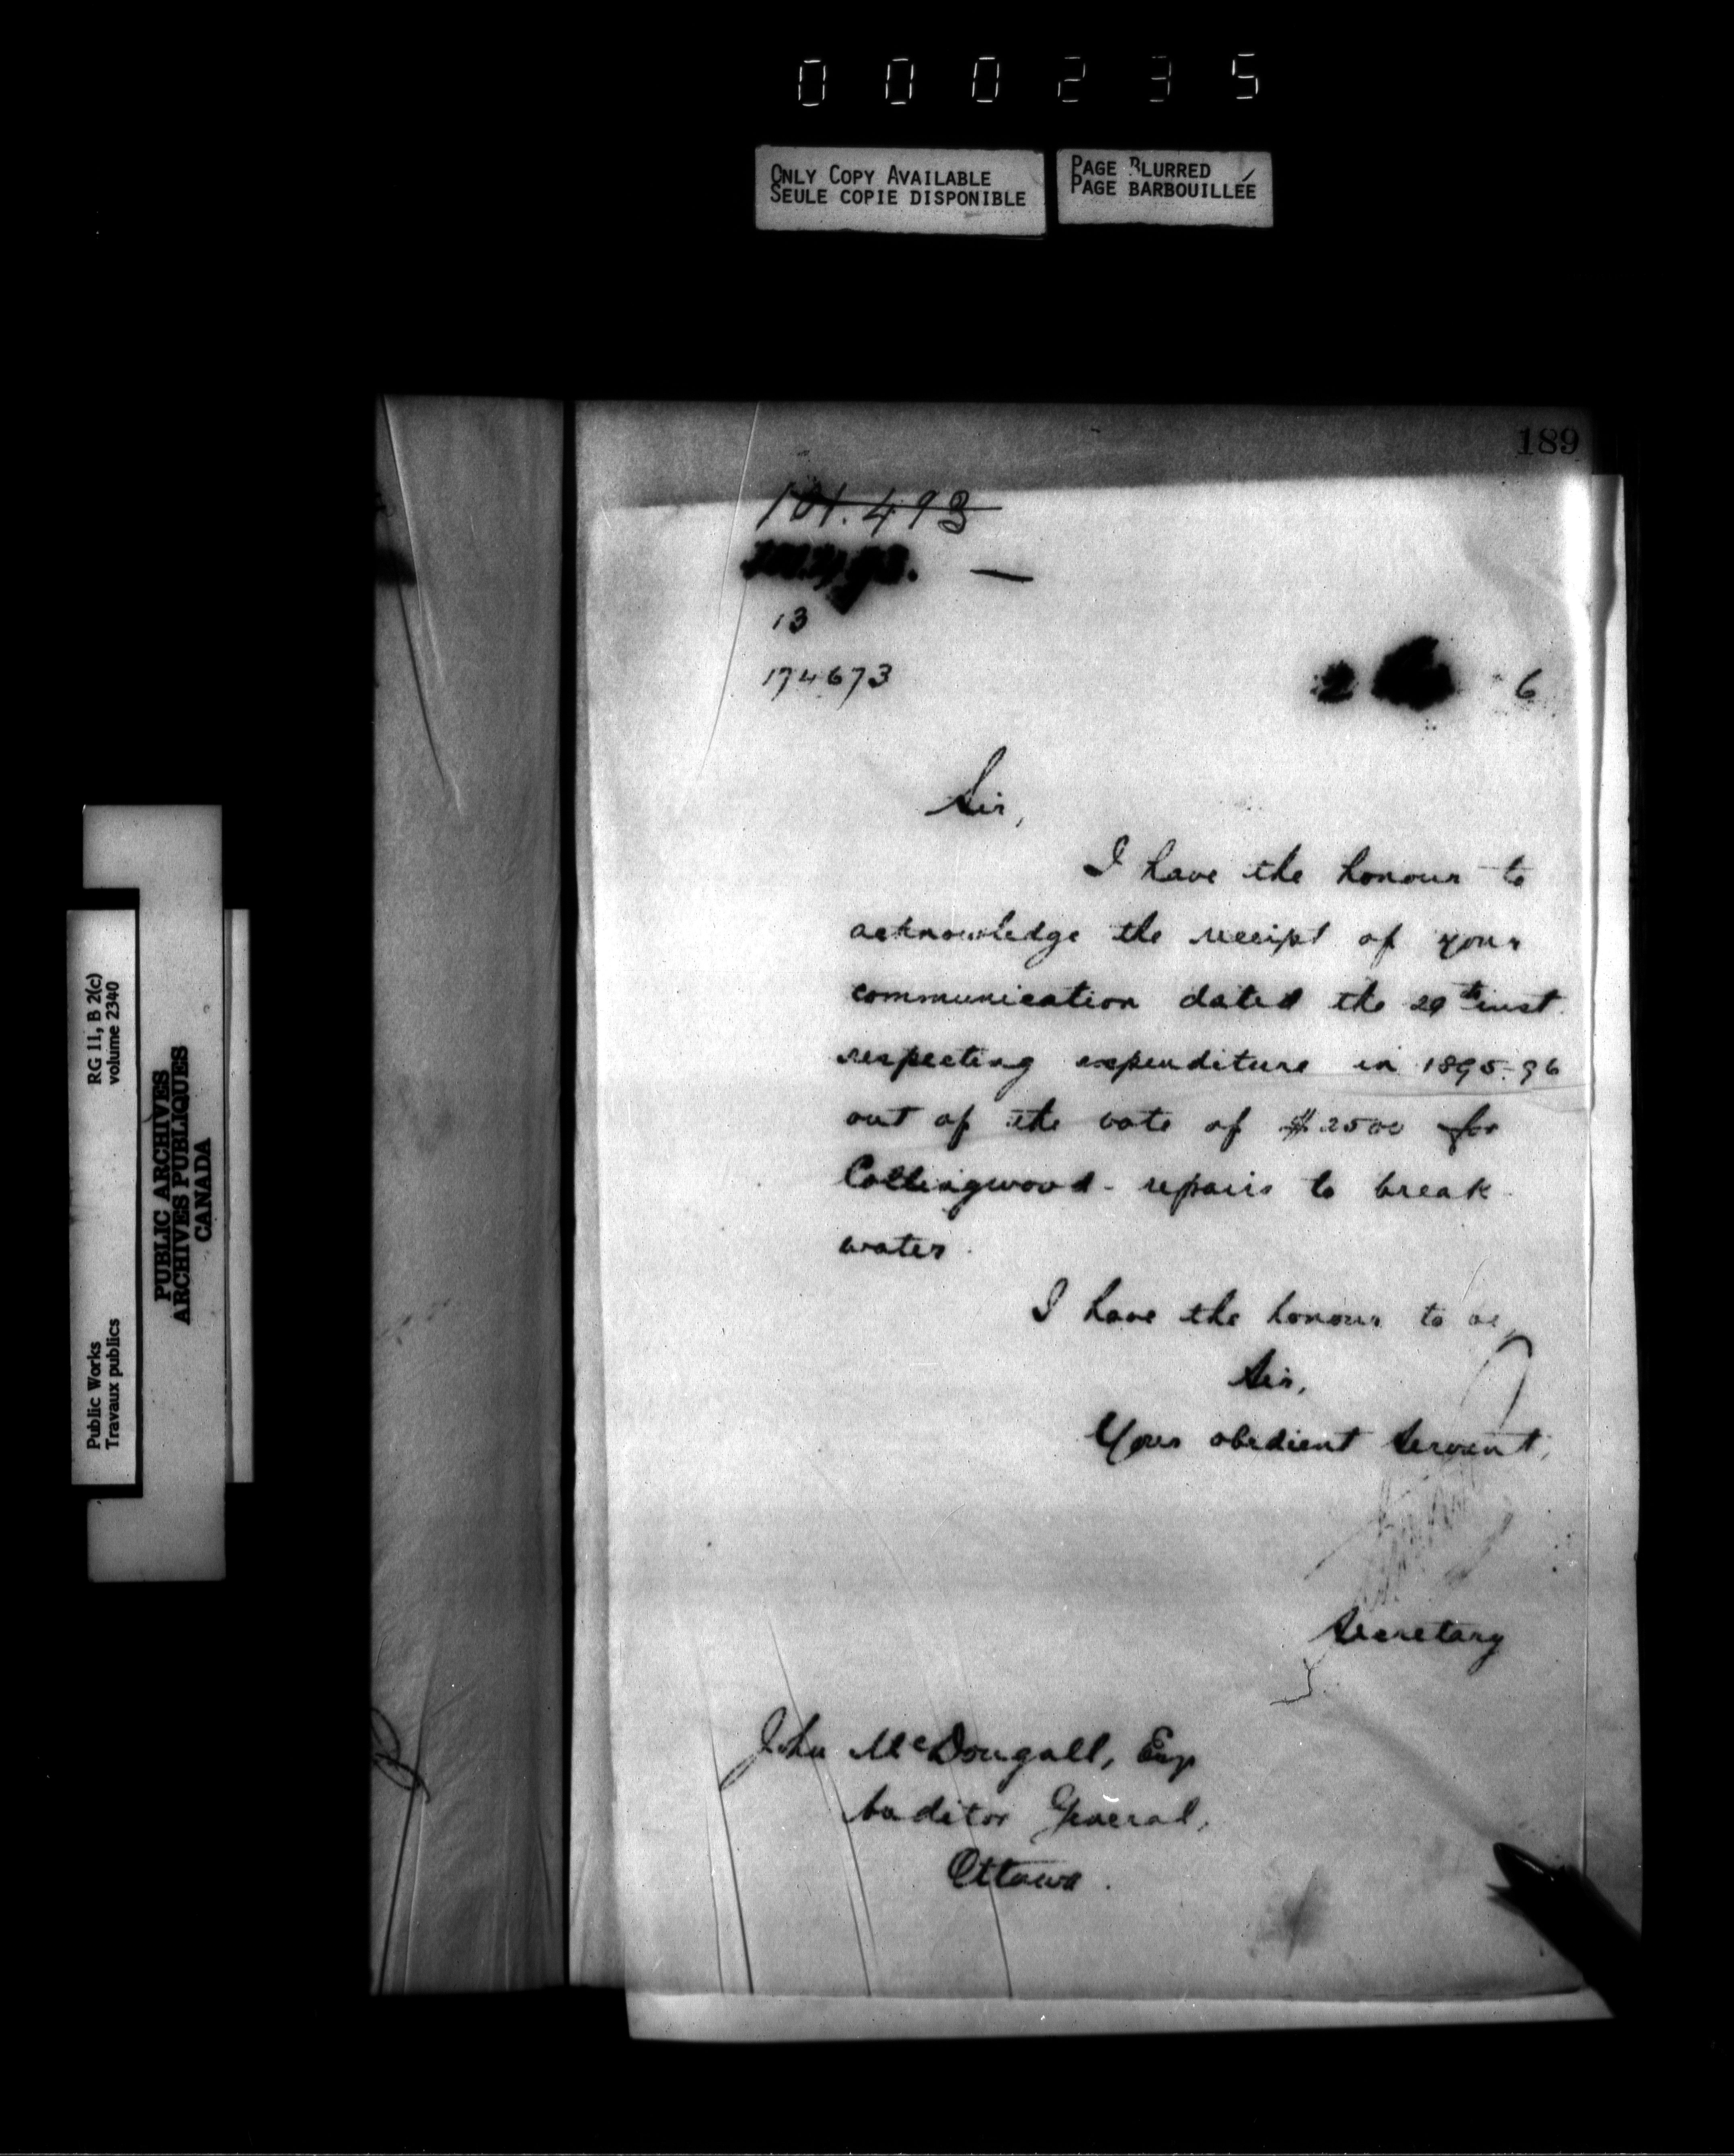 0 0 0 2 3 5
ONLY COPY AVAILABLE
SEULE COPIE DISPONIBLE
PAGE BLURRED
PAGE BARBOUILLÉE
189
101.493
13
174673
6
Sir,
I have the honour to
acknowledge the receipt of your
communication dated the 29th inst.
respecting expenditure in 1895-96
out of the vote of $2500 for
Collingwood - repairs to break
water.
I have the honour to be,
Sir,
Your obedient Servant,
Secretary
John McDougall, Esq
Auditor General,
Ottawa.
RG 11, B 2(c)
volume 2340
Public Works
Travaux publics
PUBLIC ARCHIVES
ARCHIVES PUBLIQUES
CANADA